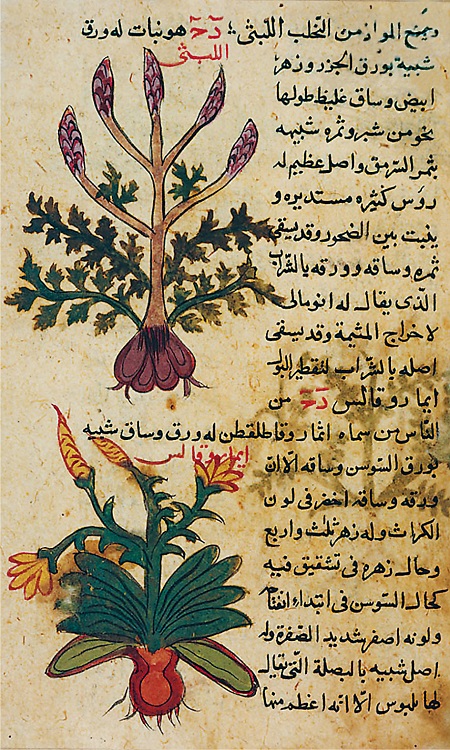 ويمنع المواد من التحلب اللبثى؛ دَحَ هو نبات له ورق
اللبثى
شبيه بورق الجزر وزهر
ابيض وساق غليظ طولها
نحو من شبر وثمره شبيهه
بثمر السرمق واصل عظيم له
روس كثيره مستديره و
ينبت بين الصخور وقد يسقى
ثمره وساقه وورقه بالشراب
الذى يقال له انومالى
لاخراج المشيمة وقد يسقى
اصله بالشراب لتقطير البول
ايما روقالس دَحَ من
الناس من سماه انما روقاطلقطن له ورق وساق شبيه
ايما روقالس
بورق السوسن وساقه الا ان
ورقه وساقه اخضر فى لون
الكراث وله زهر ثلث واربع
وحال زهره فى تشقيق فيه
كحال السوسن فى ابتداء انفتاح
ولونه اصفر شديد الصفرة وله
اصل شبيه بالبصلة التى يقال
لها بلبوس الا انه اعظم منها